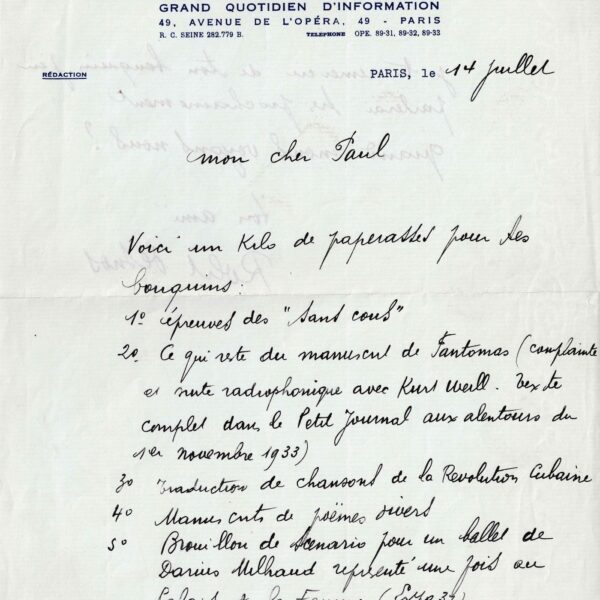 GRAND QUOTIDIEN D'INFORMATION
49, AVENUE DE L'OPÉRA, 49 - PARIS
R. C. SEINE 282.779 B. TELEPHONE OPE. 89-31, 89-32, 89-33
RÉDACTION
PARIS, le 14 juillet
mon cher Paul
Voici un Kilo de paperasses pour tes
bouquins:
1º épreuves des "Sans cous"
2º Ce qui reste du manuscrit de Fantomas (complainte
et suite radiophonique avec Kurt Weill. Texte
complet dans le Petit Journal aux alentours du
1er novembre 1933)
3º Traduction de chansons de la Revolution Cubaine
4º Manuscrits de poëmes divers
5º Brouillon de Scenario pour un ballet de
Darius Milhaud représenté une fois au